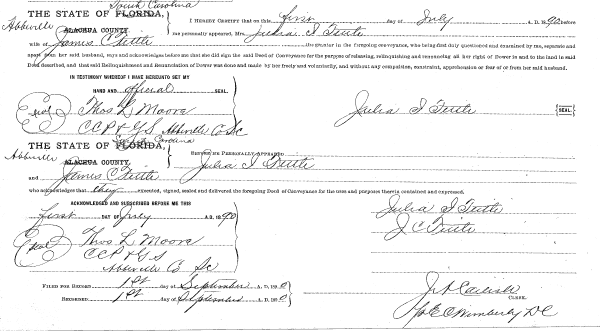 South Carolina
THE STATE OF FLORIDA, I HEREBY CERTIFY that on this first day of July A. D. 1890 before
Abbeville ALACHUA COUNTY. me personally appeared, Mrs. Julia I Tuttle
wife of James C Tuttle the grantor in the foregoing conveyance, who being first duly questioned and examined by me, separate and
apart from her said husband, says and acknowledges before me that she did sign the said Deed of Conveyance for the purpose of releasing, relinquishing and renouncing all her right of Dower in and to the land in said
Deed described, and that said Relinquishment and Renunciation of Dower was done and made by her freely and voluntarily, and without any compulsion, constraint, apprehension or fear of or from her said husband.
IN TESTIMONY WHEREOF I HAVE HEREUNTO SET MY
HAND AND official SEAL.
Seal Thos L Moore Julia I Tuttle SEAL
CCP & GS Abbeville Co Sc
South Carolina
THE STATE OF FLORIDA, BEFORE ME PERSONALLY APPEARED
Abbeville ALACHUA COUNTY, Julia I Tuttle
and James C Tuttle
who acknowledge that they executed, signed, sealed and delivered the foregoing Deed of Conveyance for the uses and purposes therein contained and expressed.
ACKNOWLEDGED AND SUBSCRIBED BEFORE ME THIS
first DAY OF July A. D. 1890 Julia I Tuttle
Seal Thos L Moore J C Tuttle
CCP & GS
Abbeville Co Sc
FILED FOR RECORD 1st day of September A. D. 1890
RECORDED 1st day of September A. D. 1890
CLERK.
Wimberly DC